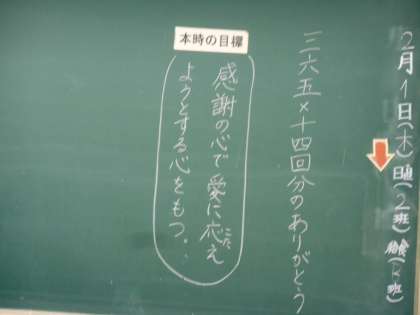 2月1日(木)日直(2班)給食(K班)
三六五×十四回分のありがとう
本時の目標
感謝の心で愛に応え
こた
ようとする心をもつ。